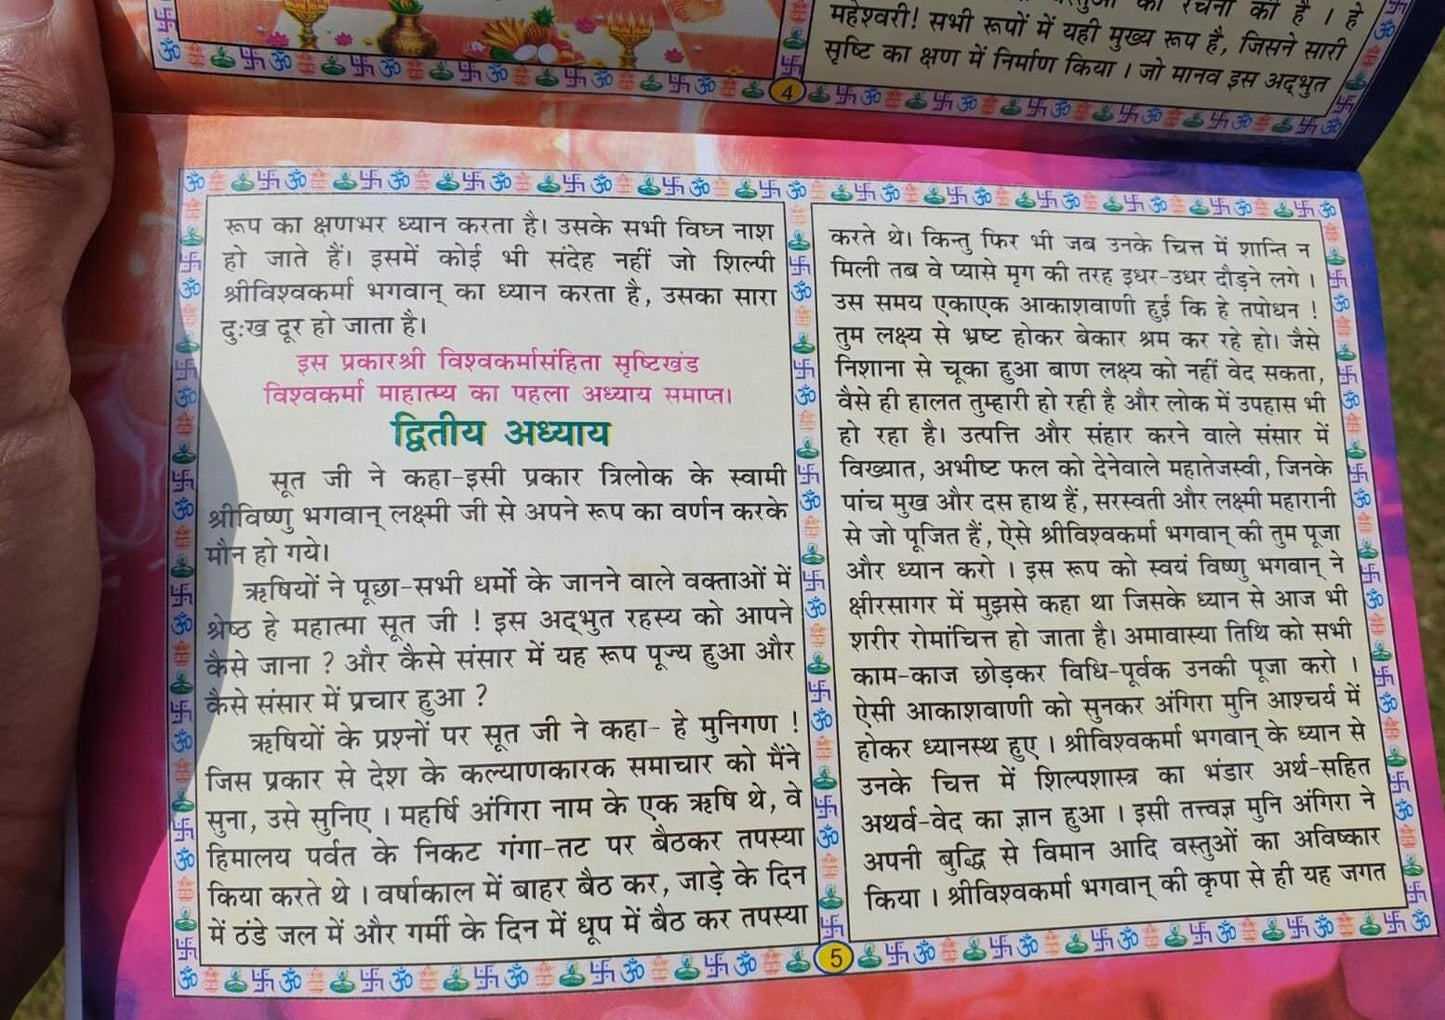 महेश्वरी! सभी रूपों में यही मुख्य रूप है, जिसने सारी
सृष्टि का क्षण में निर्माण किया । जो मानव इस अद्भुत
4
रूप का क्षणभर ध्यान करता है। उसके सभी विघ्न नाश
हो जाते हैं। इसमें कोई भी संदेह नहीं जो शिल्पी
श्रीविश्वकर्मा भगवान् का ध्यान करता है, उसका सारा
दुःख दूर हो जाता है।
इस प्रकारश्री विश्वकर्मासंहिता सृष्टिखंड
विश्वकर्मा माहात्म्य का पहला अध्याय समाप्त।
द्वितीय अध्याय
सूत जी ने कहा-इसी प्रकार त्रिलोक के स्वामी
श्रीविष्णु भगवान् लक्ष्मी जी से अपने रूप का वर्णन करके
मौन हो गये।
ऋषियों ने पूछा-सभी धर्मो के जानने वाले वक्ताओं में
श्रेष्ठ हे महात्मा सूत जी ! इस अद्भुत रहस्य को आपने
कैसे जाना ? और कैसे संसार में यह रूप पूज्य हुआ और
कैसे संसार में प्रचार हुआ ?
ऋषियों के प्रश्नों पर सूत जी ने कहा- हे मुनिगण !
जिस प्रकार से देश के कल्याणकारक समाचार को मैंने
सुना, उसे सुनिए । महर्षि अंगिरा नाम के एक ऋषि थे, वे
हिमालय पर्वत के निकट गंगा-तट पर बैठकर तपस्या
किया करते थे । वर्षाकाल में बाहर बैठ कर, जाड़े के दिन
में ठंडे जल में और गर्मी के दिन में धूप में बैठ कर तपस्या
करते थे। किन्तु फिर भी जब उनके चित्त में शान्ति न
मिली तब वे प्यासे मृग की तरह इधर-उधर दौड़ने लगे ।
उस समय एकाएक आकाशवाणी हुई कि हे तपोधन !
तुम लक्ष्य से भ्रष्ट होकर बेकार श्रम कर रहे हो। जैसे
निशाना से चूका हुआ बाण लक्ष्य को नहीं वेद सकता,
वैसे ही हालत तुम्हारी हो रही है और लोक में उपहास भी
हो रहा है। उत्पत्ति और संहार करने वाले संसार में
विख्यात, अभीष्ट फल को देनेवाले महातेजस्वी, जिनके
पांच मुख और दस हाथ हैं, सरस्वती और लक्ष्मी महारानी
से जो पूजित हैं, ऐसे श्रीविश्वकर्मा भगवान् की तुम पूजा
और ध्यान करो । इस रूप को स्वयं विष्णु भगवान् ने
क्षीरसागर में मुझसे कहा था जिसके ध्यान से आज भी
शरीर रोमांचित्त हो जाता है। अमावास्या तिथि को सभी
काम-काज छोड़कर विधि-पूर्वक उनकी पूजा करो ।
ऐसी आकाशवाणी को सुनकर अंगिरा मुनि आश्चर्य में
होकर ध्यानस्थ हुए । श्रीविश्वकर्मा भगवान् के ध्यान से
उनके चित्त में शिल्पशास्त्र का भंडार अर्थ-सहित
अथर्व-वेद का ज्ञान हुआ । इसी तत्त्वज्ञ मुनि अंगिरा ने
अपनी बुद्धि से विमान आदि वस्तुओं का अविष्कार
किया । श्रीविश्वकर्मा भगवान् की कृपा से ही यह जगत
5